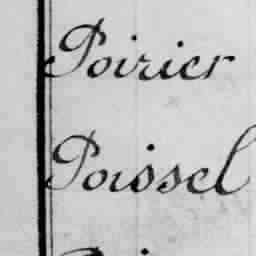 Poirier
Poissel